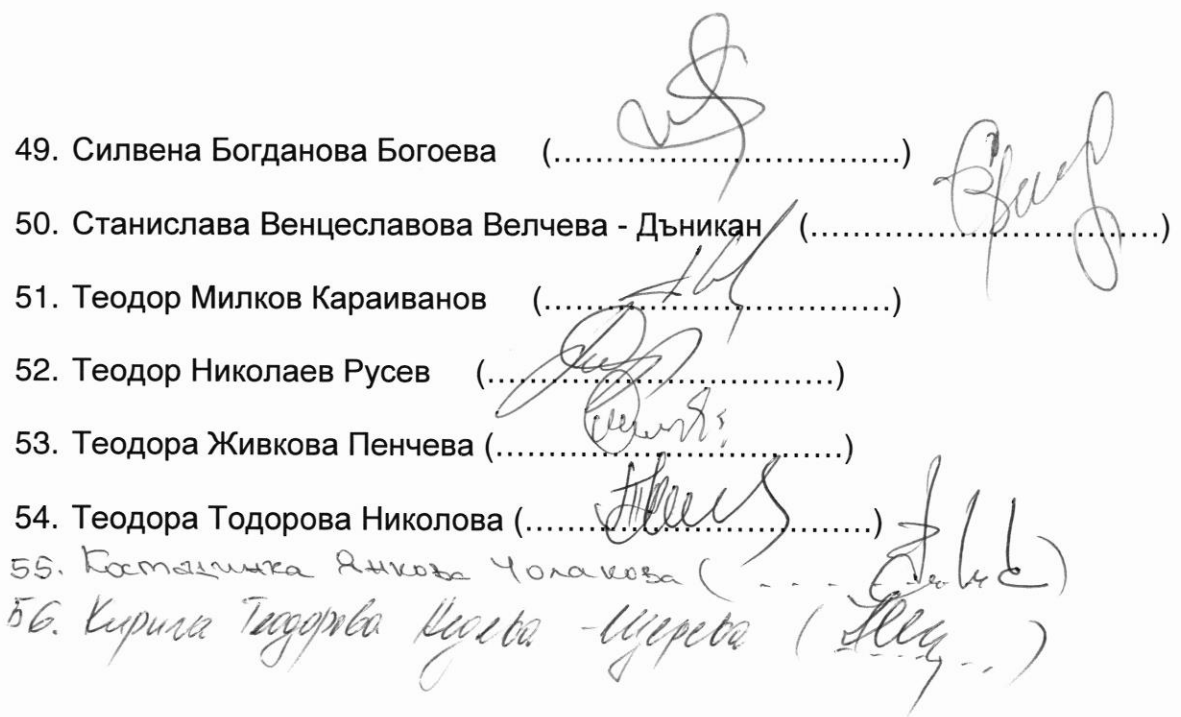 49. Силвена Богданова Богоева (.................................)
50. Станислава Венцеславова Велчева - Дъникан (.................................)
51. Теодор Милков Караиванов (.................................)
52. Теодор Николаев Русев (.................................)
53. Теодора Живкова Пенчева (.................................)
54. Теодора Тодорова Николова (.................................)
55. Костадинка Янкова Чолакова (.......)
56. Кирила Теодорова Недева - Щерева (.......)